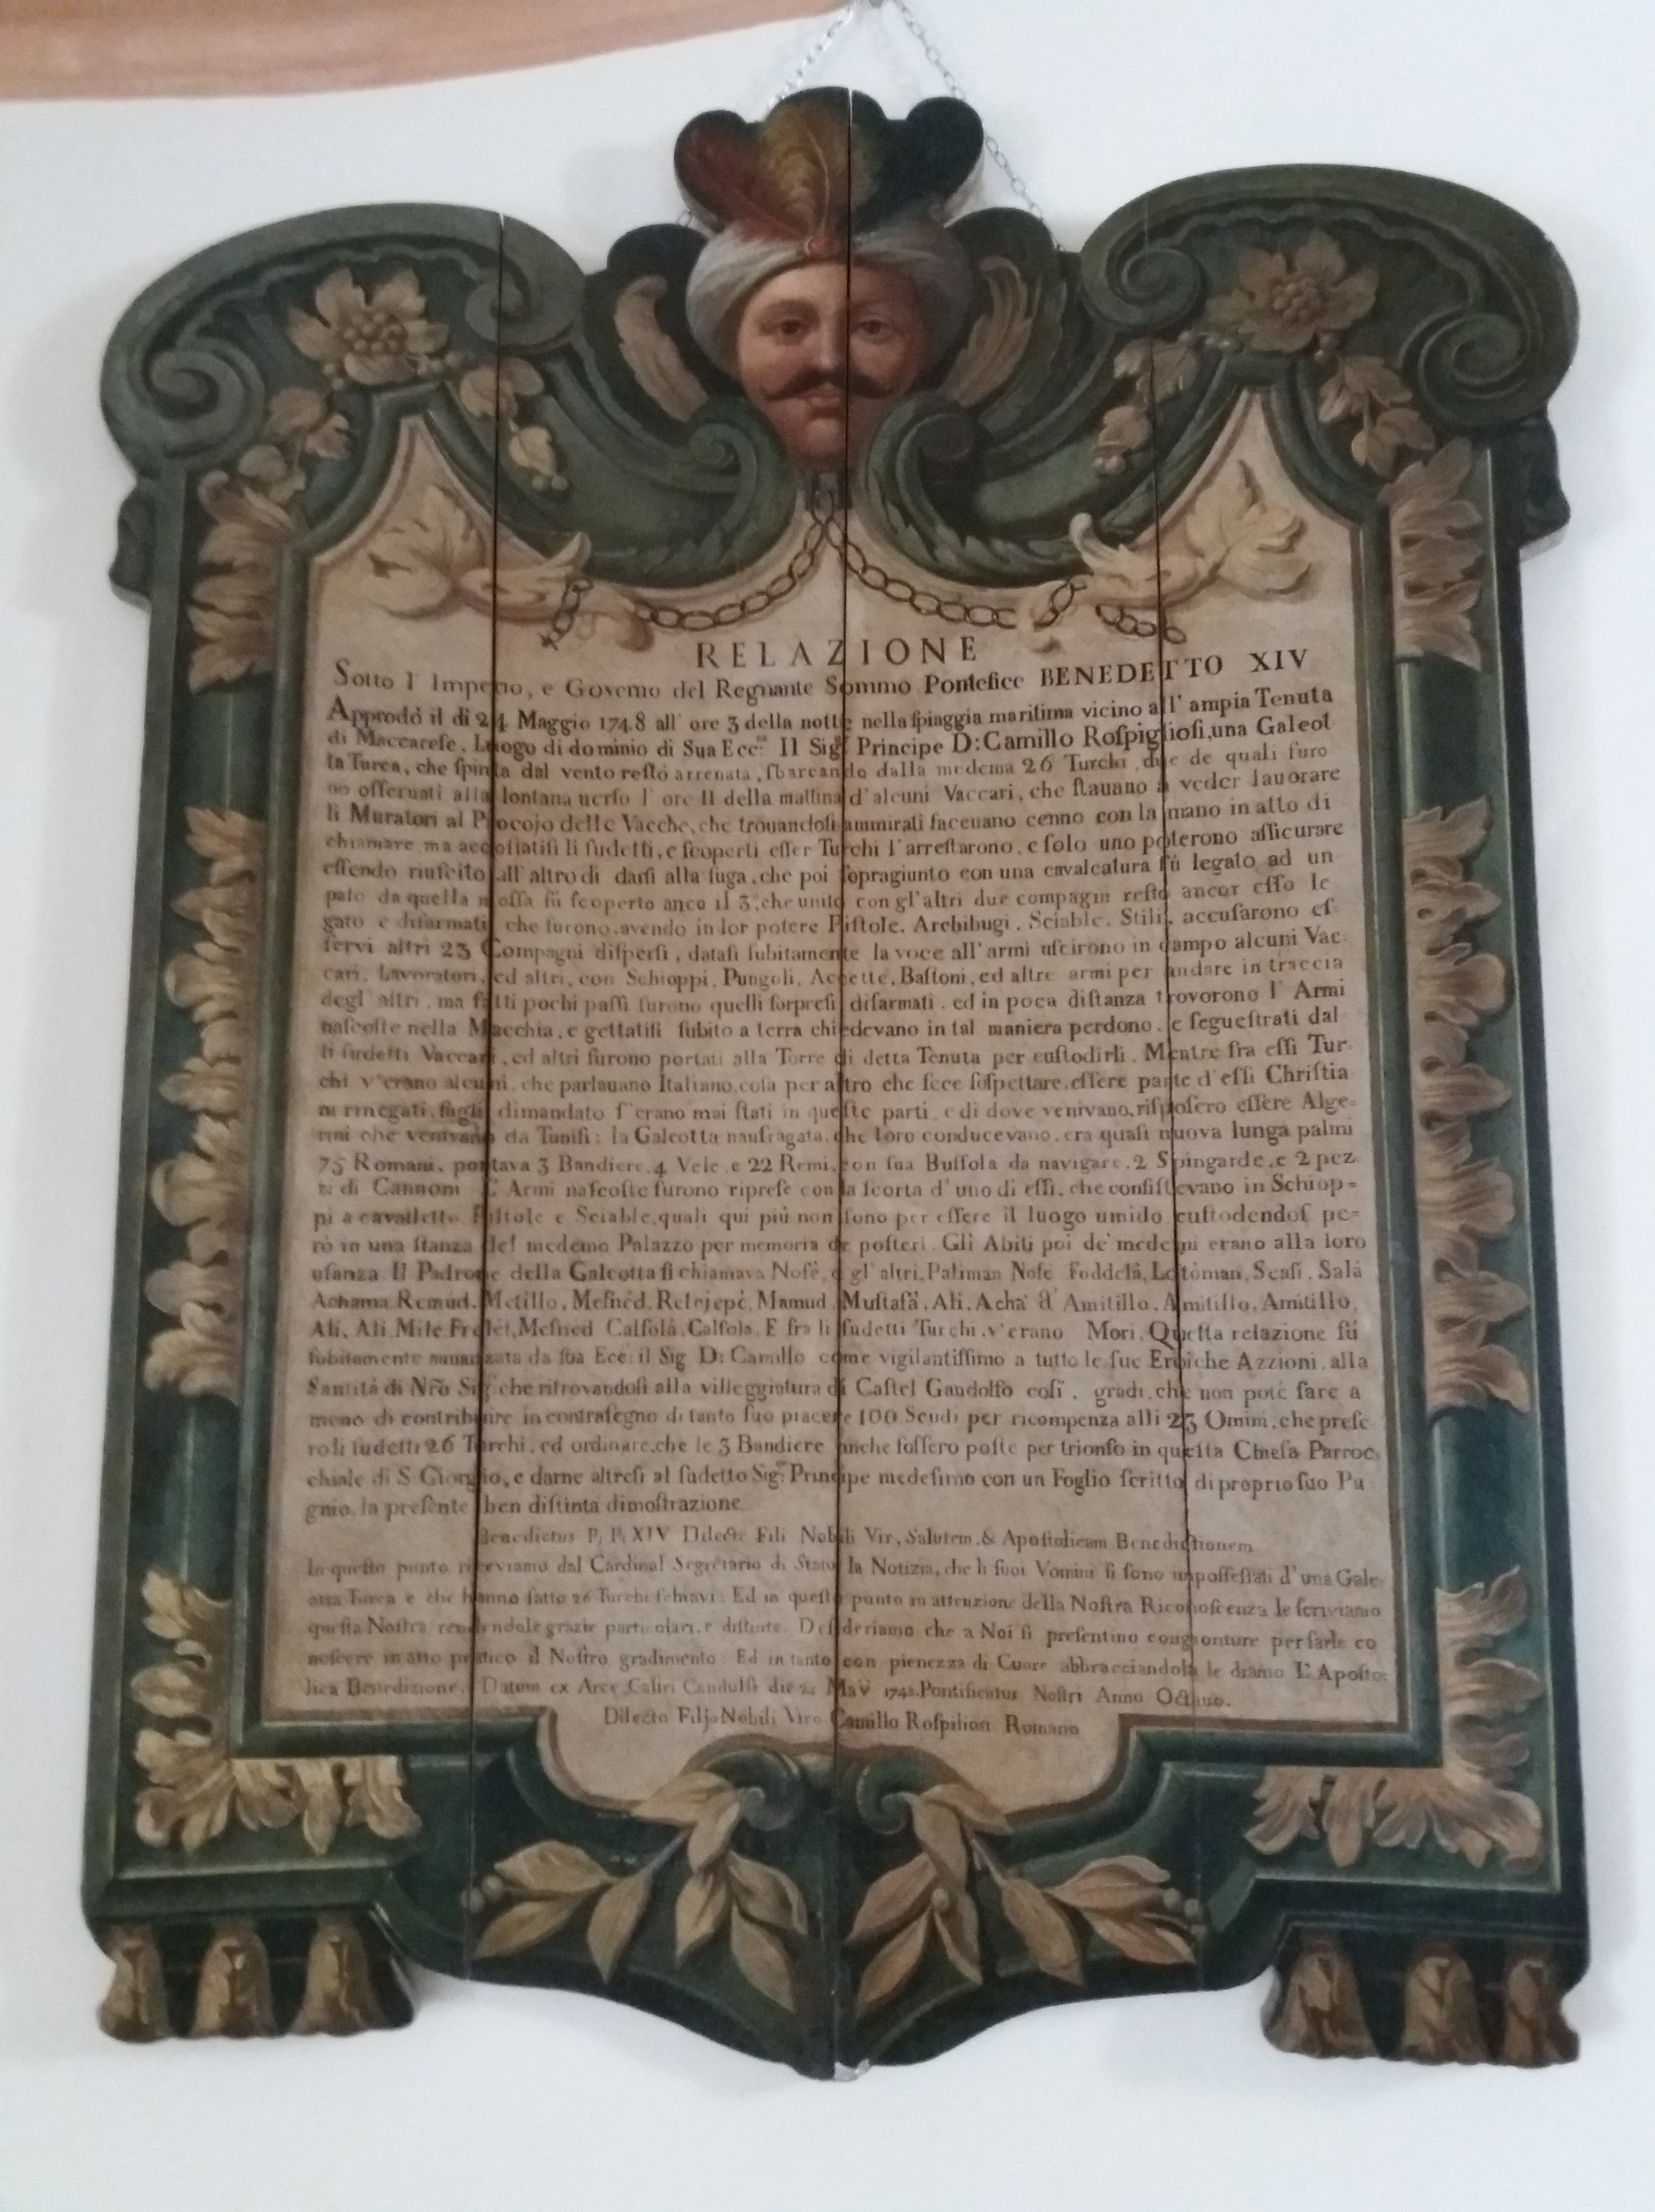 RELAZIONE
Sotto l' Imperio, e Governo del Regnante Sommo Pontefice BENEDETTO XIV
Approdò il di 24 Maggio 1748 all' ore 3 della notte nella ſpiaggia maritima vicino all' ampia Tenuta
di Maccareſe, Luogo di dominio di Sua Ecc.za Il Sig.r Principe D: Camillo Roſpiglioſi, una Galeot
ta Turca, che ſpinta dal vento reſtò arrenata, ſbarcando dalla medema 26 Turchi, due de quali furo
no oſſervati alla lontana verſo l' ore 11 della mattina d'alcuni Vaccari, che ſtauano à veder lauorare
li Muratori al Procojo delle Vacche, che trouandoſi ammirati faceuano cenno con la mano in atto di
chiamare ma accoſtatiſi li ſudetti, e ſcoperti eſſer Turchi l'arreſtarono, e ſolo uno poterono aſſicurare
eſſendo riuſcito all' altro di darſi alla fuga, che poi ſopragiunto con una cavalcatura fù legato ad un
palo da quella moſſa fù ſcoperto anco il 3.º, che unito con gl'altri due compagni reſtò ancor eſſo le
gato e diſarmati, che furono, avendo in lor potere Piſtole, Archibugi, Sciable, Stili, accuſarono eſ
ſervi altri 23 Compagni diſperſi, dataſi ſubitamente la voce all' armi uſcirono in campo alcuni Vac
cari, Lavoratori, ed altri, con Schioppi, Pungoli, Accette, Baſtoni, ed altre armi per andare in traccia
degl' altri, ma fatti pochi paſſi furono quelli ſorpreſi diſarmati, ed in poca diſtanza trovorono l' Armi
naſcoſte nella Macchia, e gettatiſi ſubito a terra chiedevano in tal maniera perdono, e ſequeſtrati dal
li ſudetti Vaccari, ed altri furono portati alla Torre di detta Tenuta per cuſtodirli. Mentre fra eſſi Tur
chi v'erano alcuni, che parlauano Italiano, coſa per altro che fece ſoſpettare, eſſere parte d'eſſi Chriſtia
ni rinegati, fugli dimandato ſ'erano mai ſtati in queſte parti e di dove venivano, riſpoſero eſſere Alge=
rini che venivano da Tuniſi: la Galeotta naufragata, che loro conducevano, era quaſi nuova lunga palmi
75 Romani, portava 3 Bandiere, 4 Vele, e 22 Remi, con ſua Buſſola da navigare, 2 Spingarde, e 2 pez
zi di Cannoni L' Armi naſcoſte furono ripreſe con la ſcorta d'uno di eſſi, che conſiſtevano in Schiop=
pi a cavalletto, Piſtole e Sciable, quali qui più non ſono per eſſere il luogo umido cuſtodendoſ pe=
rò in una ſtanza del medemo Palazzo per memoria de poſteri. Gli Abiti poi de' medemi erano alla loro
uſanza Il Padrone della Galeotta ſi chiamava Noſè, e gl' altri, Paliman Noſe Foddelà, Lotòman, Scaſi, Salà
Achama, Remùd, Metillo, Meſnèd, Retejepè, Mamud, Muſtafà, Ali, Achà d' Amitillo, Amitillo, Amitillo,
Ali, Ali, Mile, Meſned Calfolà, Calfola, E fra li ſudetti Turchi, v'erano Mori, Queſta relazione fù
ſubitamente auuanzata da ſua Ecc: il Sig D: Camillo come vigilantiſſimo a tutto le ſue Eroiche Azzioni, alla
Santità di Nrõ Sig: che ritrovandoſi alla villeggiatura di Caſtel Gandolfo coſì gradì, che non potè fare a
meno di contribuire in contraſegno di tanto ſuo piacere 100 Scudi per ricompenza alli 23 Omini, che preſe
ro li ſudetti 26 Turchi, ed ordinare, che le 3 Bandiere anche foſſero poſte per trionfo in queſta Chieſa Parroc
chiale di S. Giorgio, e darne altreſi al ſudetto Sig.r Principe medeſimo con un Foglio ſcritto di proprio ſuo Pu
gnio, la preſente ben diſtinta dimoſtrazione
Benedictus P. P. XIV Dilecte Fili Nobili Vir, Salutem, & Apoſtolicam Benedictionem
In queſto punto riceviamo dal Cardinal Segretario di Stato la Notizia, che li ſuoi Vomini ſi ſono impoſſeſſati d'una Gale
otta Turca e che hanno fatto 26 Turchi ſchiavi: Ed in queſto punto in attenzione della Noſtra Riconoſcenza le ſcriviamo
queſta Noſtra rendendole grazie particolari, e diſtinte. Deſideriamo che a Noi ſi preſentino congionture per farle co
noſcere in atto pratico il Noſtro gradimento: Ed in tanto con pienezza di Cuore abbracciandola le diamo L'Apoſto=
lica Benedizione. Datum ex Arce Caſtri Candulfi die 24 Maÿ 1748. Pontificatus Noſtri Anno Octauo.
Dilecto Filjo Nobili Viro Camillo Roſpilioſi Romano